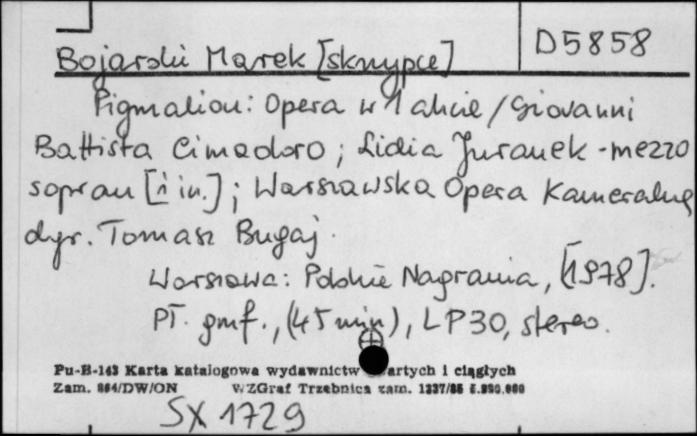 D5858
Bojarski Marek [skrzypce]
Pigmalion: Opera w 1 akcie / Giovanni
Battista Cimadoro ; Lidia Juranek - mezzo
sopran [i in.] ; Warszawska Opera Kameralna
dyr. Tomasz Bugaj.
Warszawa: Polskie Nagrania, [1978].
Pł. gmf., (45 min), LP30, stereo.
Pu-B-143 Karta katalogowa wydawnictw artych i ciągłych
Zam. 864/DW/ON WZGraf Trzebnica zam. 1237/86
SX 1729